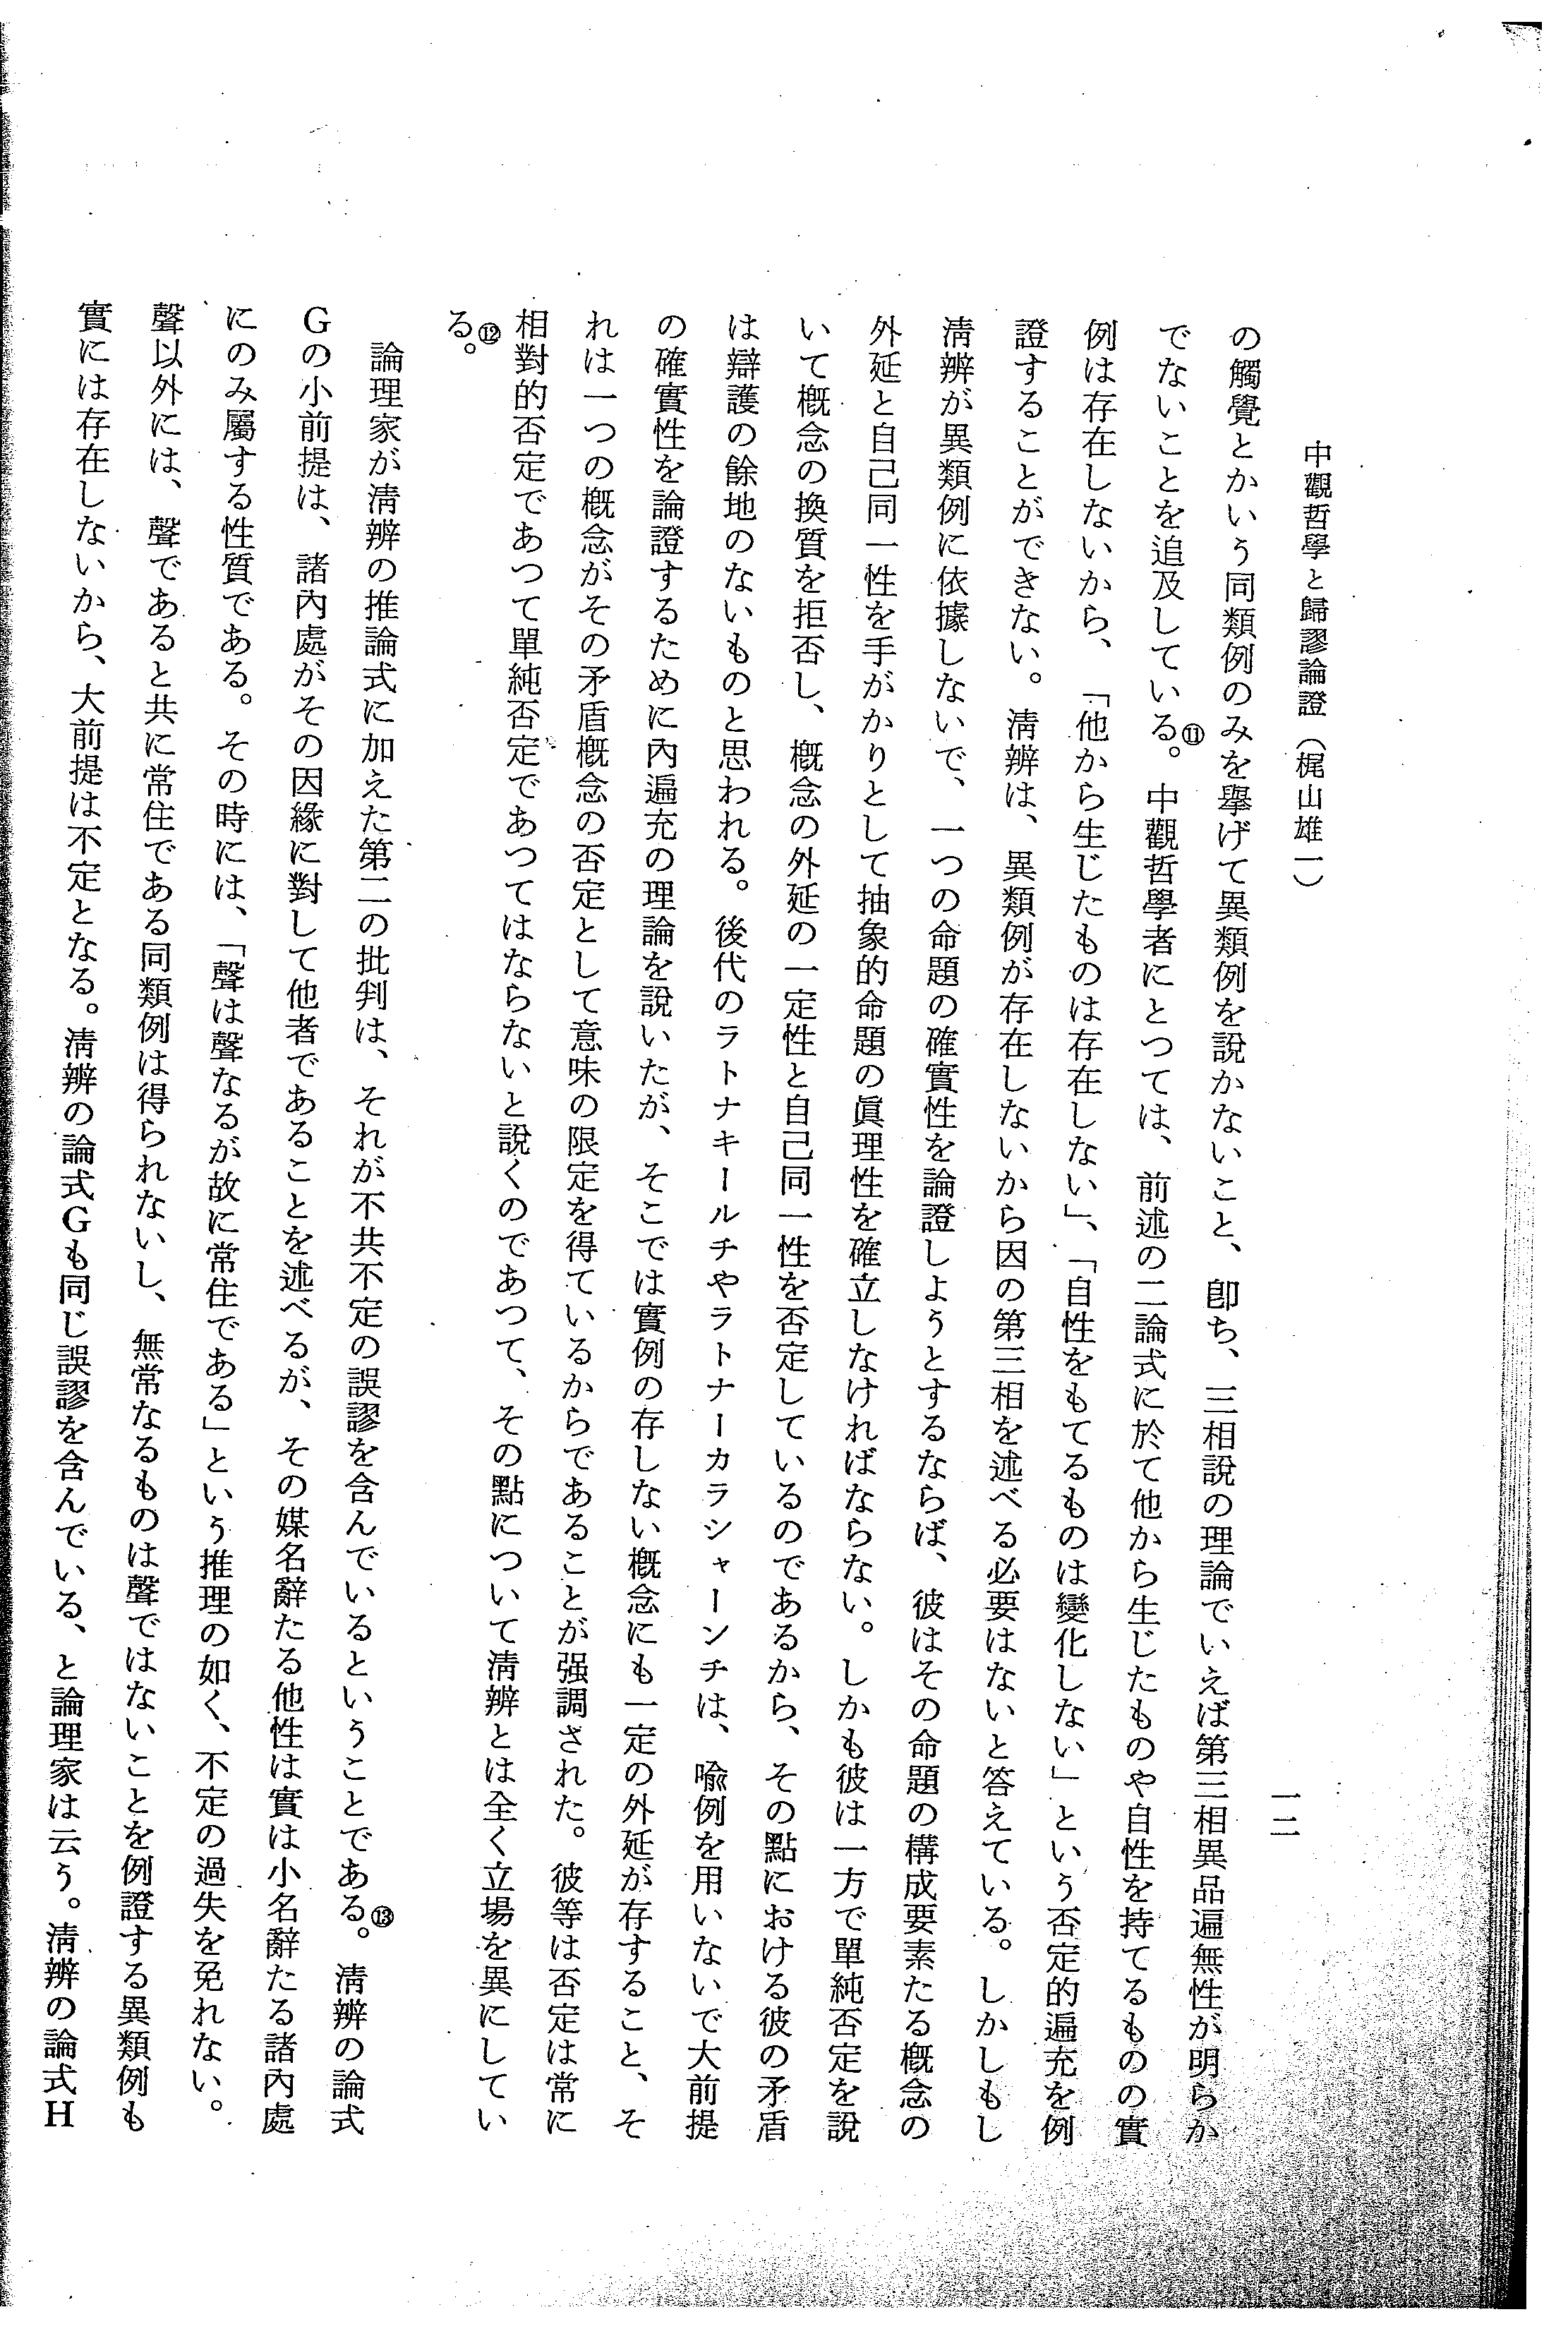 中觀哲學と歸謬論證（梶山雄一）
一二
の觸覺とかいう同類例のみを擧げて異類例を說かないこと、卽ち、三相說の理論でいえば第三相異品遍無性が明らか
でないことを追及している⑪。中觀哲學者にとつては、前述の二論式に於て他から生じたものや自性を持てるものの實
例は存在しないから、「他から生じたものは存在しない」、「自性をもてるものは變化しない」という否定的遍充を例
證することができない。淸辨は、異類例が存在しないから因の第三相を述べる必要はないと答えている。しかしもし
淸辨が異類例に依據しないで、一つの命題の確實性を論證しようとするならば、彼はその命題の構成要素たる概念の
外延と自己同一性を手がかりとして抽象的命題の眞理性を確立しなければならない。しかも彼は一方で單純否定を說
いて概念の換質を拒否し、概念の外延の一定性と自己同一性を否定しているのであるから、その點における彼の矛盾
は辯護の餘地のないものと思われる。後代のラトナキールチやラトナーカラシャーンチは、喩例を用いないで大前提
の確實性を論證するために內遍充の理論を說いたが、そこでは實例の存しない概念にも一定の外延が存すること、そ
れは一つの概念がその矛盾概念の否定として意味の限定を得ているからであることが强調された。彼等は否定は常に
相對的否定であつて單純否定であつてはならないと說くのであつて、その點について淸辨とは全く立場を異にしてい
る⑫。
論理家が淸辨の推論式に加えた第二の批判は、それが不共不定の誤謬を含んでいるということである⑬。淸辨の論式
Gの小前提は、諸內處がその因緣に對して他者であることを述べるが、その媒名辭たる他性は實は小名辭たる諸內處
にのみ屬する性質である。その時には、「聲は聲なるが故に常住である」という推理の如く、不定の過失を免れない。
聲以外には、聲であると共に常住である同類例は得られないし、無常なるものは聲ではないことを例證する異類例も
實には存在しないから、大前提は不定となる。淸辨の論式Gも同じ誤謬を含んでいる、と論理家は云う。淸辨の論式H